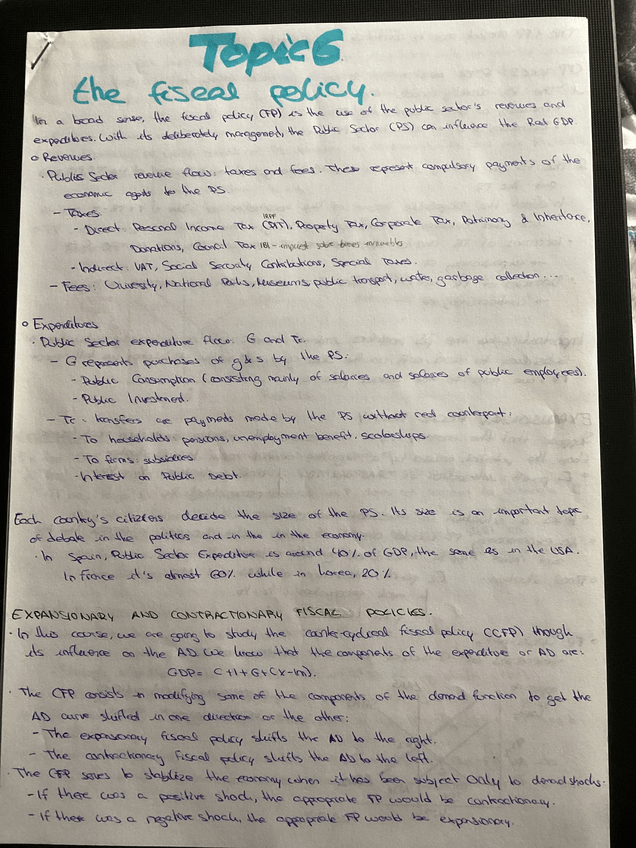 Topic 6
the fiscal policy.
In a broad sense, the fiscal policy (FP) is the use of the public sector's revenues and
expeditures. With its deliberately management, the Public Sector (PS) can influence the Real GDP.
o Revenues
· Publis Sector revenue flow: taxes and fees. These represent compulsory payments of the
economic agets to the PS.
- Taxes
- Direct: Personal Income Tax (PIT), Property Tax, Corporate Tax, Patrimony & Inheritance,
IRPF
Donations, Council Tax IBI - impuest sobre bienes inmuebles
- Indirect: VAT, Social Security Contributions, Special Taxes.
- Fees: University, National Parks, Museums, public transport, water, garbage collection...
o Expenditures
· Public Sector expenditure flow: G and Tr.
- G represents purchases of g&s by the PS.
- Public Consumption (consisting mainly of salaries and of public employees).
- Public Investment.
- Tr: transfers are payments made by the PS without real counterpart:
- To households: pensions, unemployment benefit, scolarships
- To firms: subsidies
- Interest on Public Debt.
Each country's citizens decide the size of the PS. Its size is an important topic
of debate in the politics and in the in the economy.
· In Spain, Public Sector Expediture is around 40% of GDP, the same as in the USA.
In France it's almost 60% while in korea, 20%
EXPANSIONARY AND CONTRACTIONARY FISCAL POLICIES.
· In this course, we are going to study the counter-cyclical fiscal policy (CFP) though
its influence on the AD. We know that the components of the expenditure or AD are:
GDP = C+I+G+(X-Im).
· The CFP consists in modifying some of the components of the demand function to get the
AD curve shifted in one direction or the other:
- The expansionary fiscal policy shifts the AD to the right.
- The contractionary fiscal policy shifts the AD to the left.
· The CFP serves to stabilize the economy when it has been subject only to demand shocks.
- If there was a positive shock, the appropriate FP would be contractionary.
- If there was a negative shock, the appropriate FP would be expansionary.